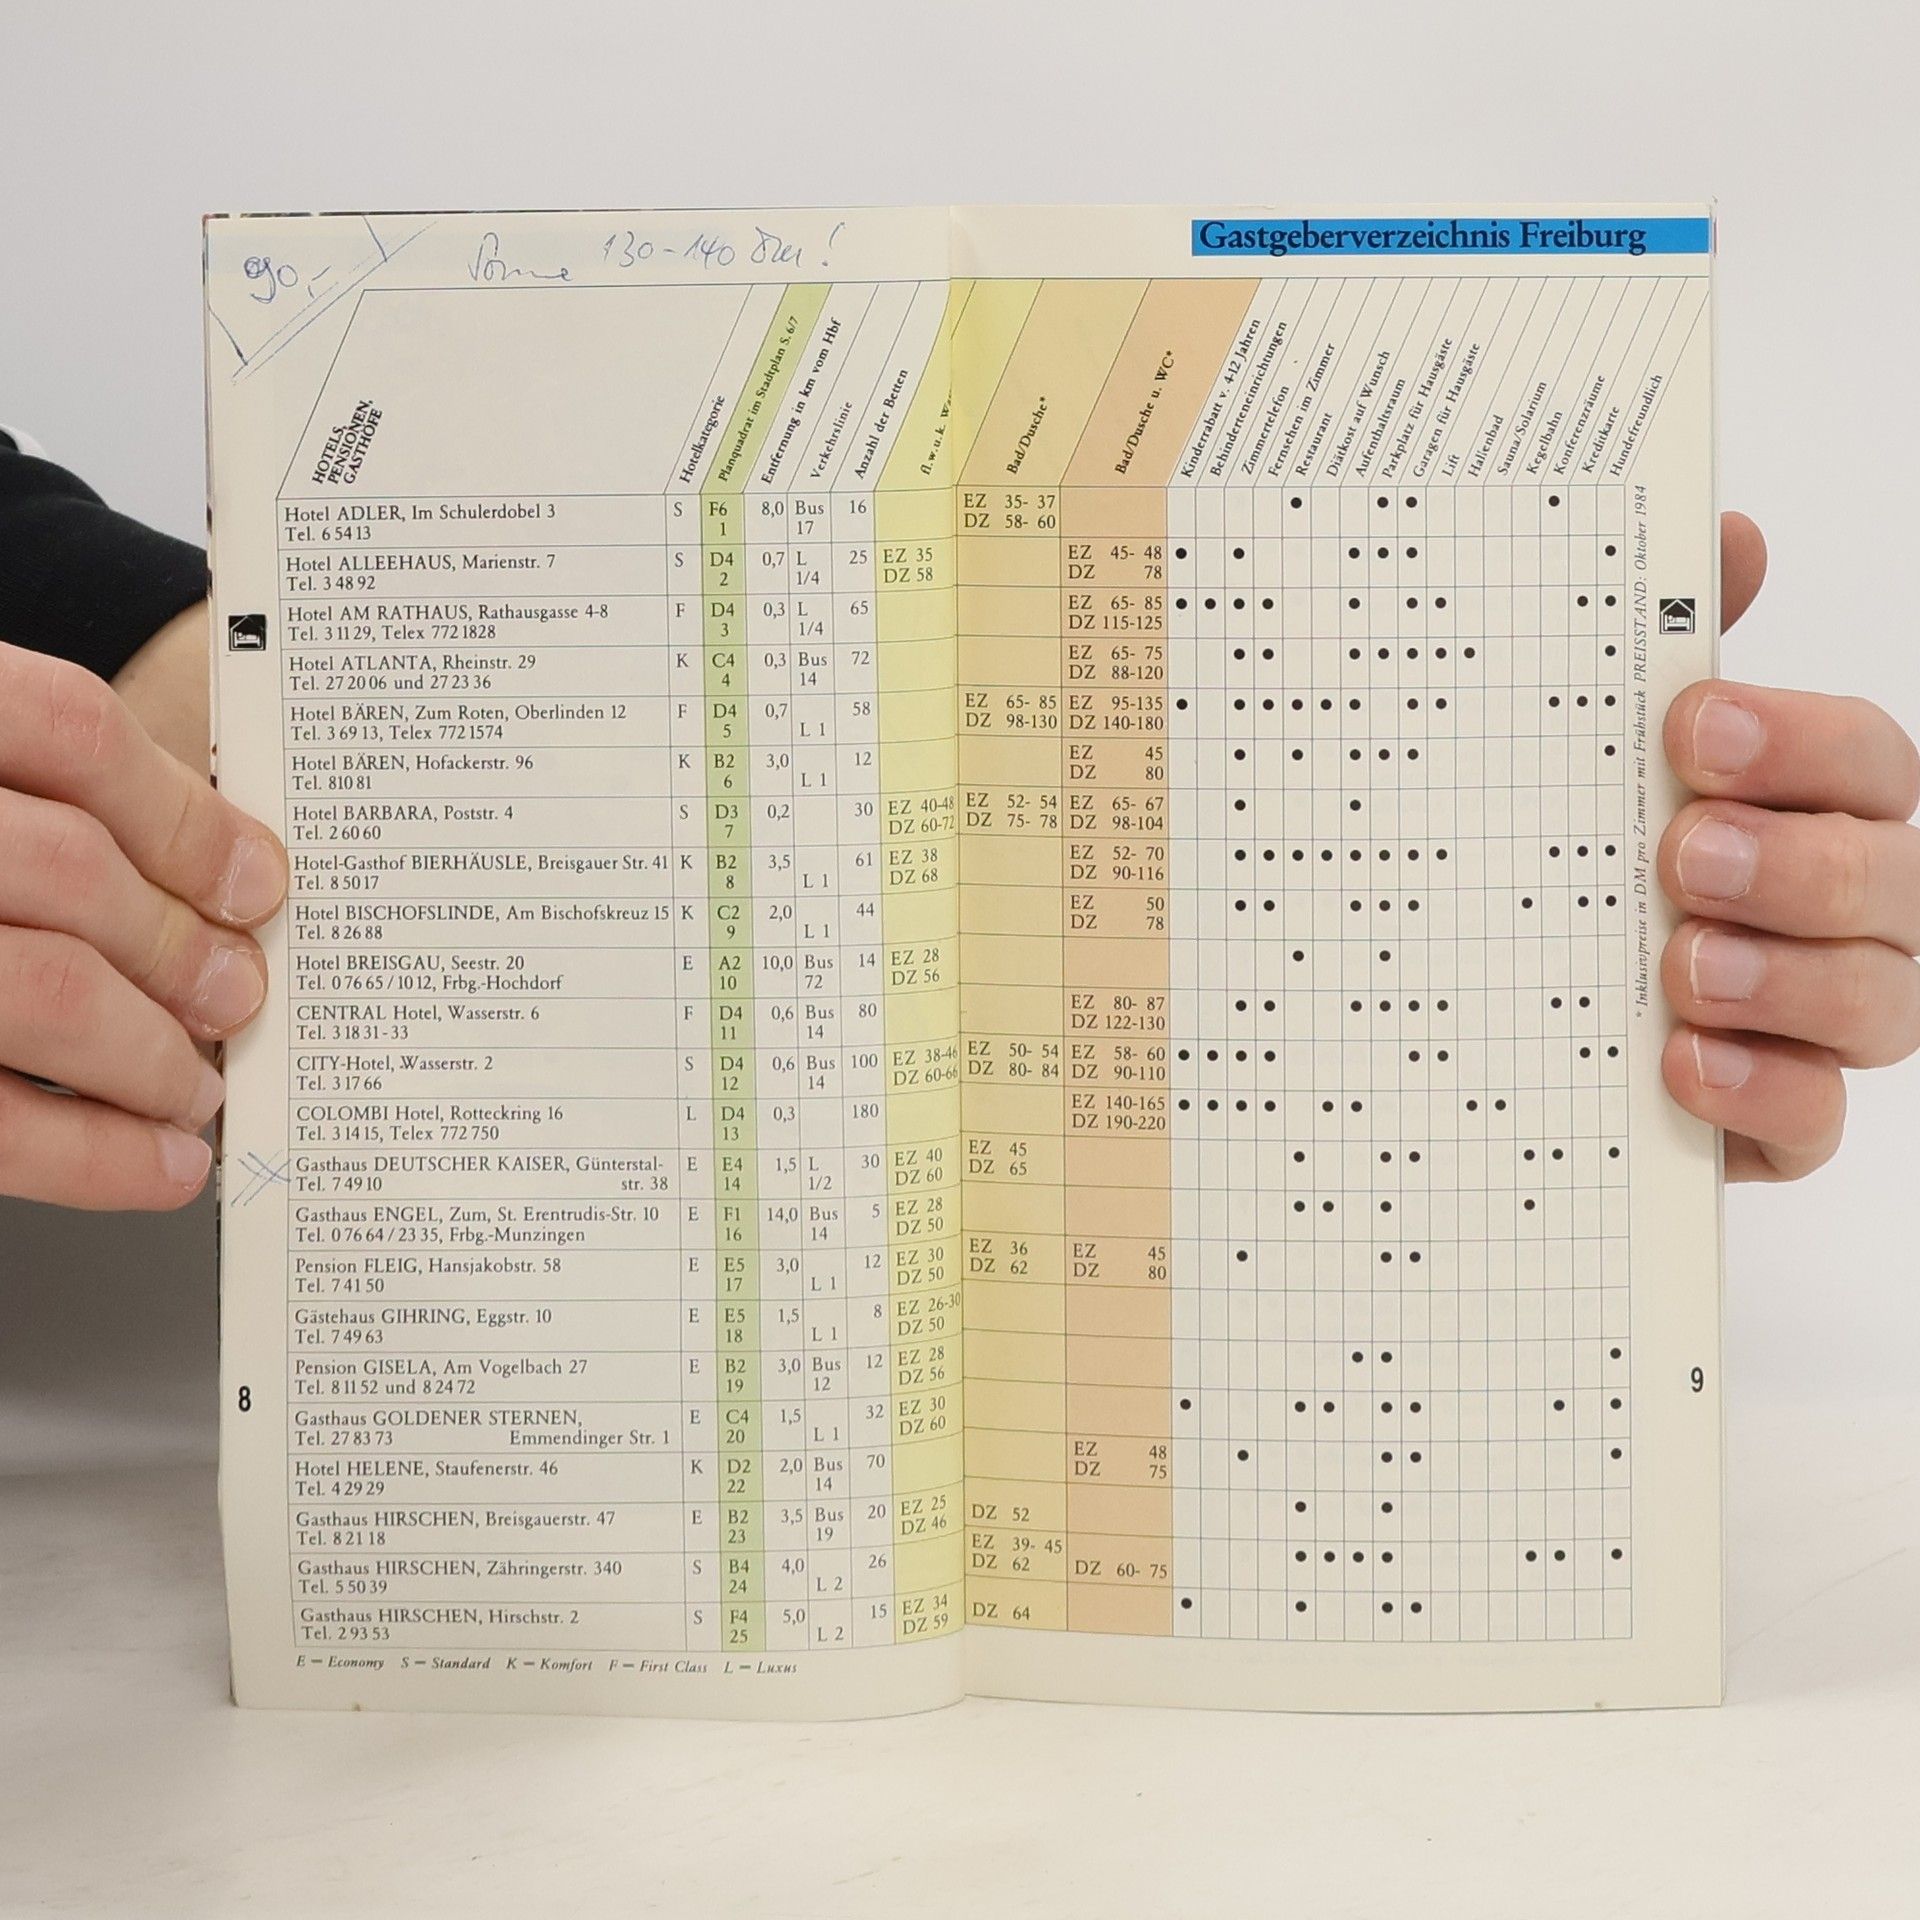 90,-
130-140
Gastgeberverzeichnis Freiburg
HOTELS,
PENSIONEN,
GASTHÖFE
Hotelkategorie
Planquadrat im Stadtplan S. 6/7
Entfernung in km vom Hbf
Verkehrslinie
Anzahl der Betten
fl. w. u. k.
Bad/Dusche*
Bad/Dusche u. WC*
Kinderrabatt v. 4-12 Jahren
Behinderteneinrichtungen
Zimmertelefon
Fernsehen im Zimmer
Restaurant
Diätkost auf Wunsch
Aufenthaltsraum
Parkplatz für Hausgäste
Garagen für Hausgäste
Lift
Hallenbad
Sauna/Solarium
Kegelbahn
Konferenzräume
Kreditkarte
Hundefreundlich
Hotel ADLER, Im Schulerdobel 3 S F6 8,0 Bus 16 EZ 35- 37
Tel. 6 54 13 1 17 DZ 58- 60
Hotel ALLEEHAUS, Marienstr. 7 S D4 0,7 L 25 EZ 35 EZ 45- 48
Tel. 3 48 92 2 1/4 DZ 58 DZ 78
Hotel AM RATHAUS, Rathausgasse 4-8 F D4 0,3 L 65 EZ 65- 85
Tel. 3 11 29, Telex 772 1828 3 1/4 DZ 115-125
Hotel ATLANTA, Rheinstr. 29 K C4 0,3 Bus 72 EZ 65- 75
Tel. 27 20 06 und 27 23 36 4 14 DZ 88-120
Hotel BÄREN, Zum Roten, Oberlinden 12 F D4 0,7 58 EZ 65- 85 EZ 95-135
Tel. 3 69 13, Telex 772 1574 5 L 1 DZ 98-130 DZ 140-180
Hotel BÄREN, Hofackerstr. 96 K B2 3,0 12 EZ 45
Tel. 810 81 6 L 1 DZ 80
Hotel BARBARA, Poststr. 4 S D3 0,2 30 EZ 40-48 EZ 52- 54 EZ 65- 67
Tel. 2 60 60 7 DZ 60-72 DZ 75- 78 DZ 98-104
Hotel-Gasthof BIERHÄUSLE, Breisgauer Str. 41 K B2 3,5 61 EZ 38 EZ 52- 70
Tel. 8 50 17 8 L 1 DZ 68 DZ 90-116
Hotel BISCHOFSLINDE, Am Bischofskreuz 15 K C2 2,0 44 EZ 50
Tel. 8 26 88 9 L 1 DZ 78
Hotel BREISGAU, Seestr. 20 E A2 10,0 Bus 14 EZ 28
Tel. 0 76 65 / 10 12, Frbg.-Hochdorf 10 72 DZ 56
CENTRAL Hotel, Wasserstr. 6 F D4 0,6 Bus 80 EZ 80- 87
Tel. 3 18 31-33 11 14 DZ 122-130
CITY-Hotel, Wasserstr. 2 S D4 0,6 Bus 100 EZ 38-46 EZ 50- 54 EZ 58- 60
Tel. 3 17 66 12 14 DZ 60-66 DZ 80- 84 DZ 90-110
COLOMBI Hotel, Rotteckring 16 L D4 0,3 180 EZ 140-165
Tel. 3 14 15, Telex 772 750 13 DZ 190-220
Gasthaus DEUTSCHER KAISER, Günterstal- E E4 1,5 L 30 EZ 40 EZ 45
Tel. 7 49 10 str. 38 14 1/2 DZ 60 DZ 65
Gasthaus ENGEL, Zum, St. Erentrudis-Str. 10 E F1 14,0 Bus 5 EZ 28
Tel. 0 76 64 / 23 35, Frbg.-Munzingen 16 14 DZ 50
Pension FLEIG, Hansjakobstr. 58 E E5 3,0 12 EZ 30 EZ 36 EZ 45
Tel. 7 41 50 17 L 1 DZ 50 DZ 62 DZ 80
Gästehaus GIHRING, Eggstr. 10 E E5 1,5 8 EZ 26-30
Tel. 7 49 63 18 L 1 DZ 50
Pension GISELA, Am Vogelbach 27 E B2 3,0 Bus 12 EZ 28
Tel. 8 11 52 und 8 24 72 19 12 DZ 56
Gasthaus GOLDENER STERNEN, E C4 1,5 32 EZ 30
Tel. 27 83 73 Emmendinger Str. 1 20 L 1 DZ 60
Hotel HELENE, Staufenerstr. 46 K D2 2,0 Bus 70 EZ 48
Tel. 4 29 29 22 14 DZ 75
Gasthaus HIRSCHEN, Breisgauerstr. 47 E B2 3,5 Bus 20 EZ 25 DZ 52
Tel. 8 21 18 23 19 DZ 46
Gasthaus HIRSCHEN, Zähringerstr. 340 S B4 4,0 26 EZ 39- 45
Tel. 5 50 39 24 L 2 DZ 62 DZ 60- 75
Gasthaus HIRSCHEN, Hirschstr. 2 S F4 5,0 15 EZ 34 DZ 64
Tel. 2 93 53 25 L 2 DZ 59
E = Economy S = Standard K = Komfort F = First Class L = Luxus
* Inklusivpreise in DM pro Zimmer mit Frühstück PREISSTAND: Oktober 1984
8
9